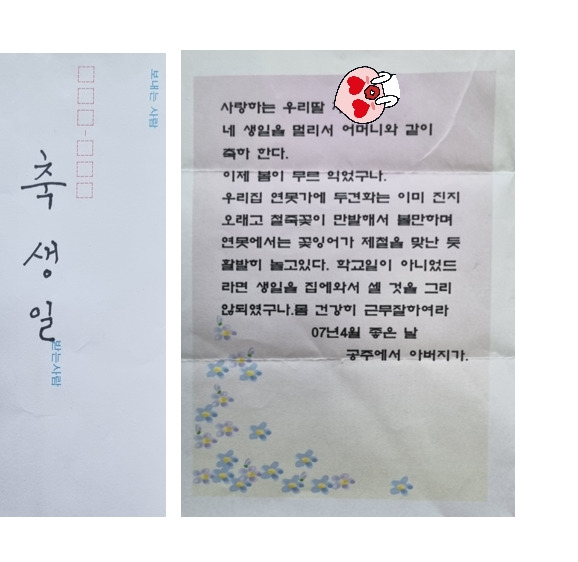 보내는 사람
축 생일
받는사람
사랑하는 우리딸
네 생일을 멀리서 어머니와 같이
축하 한다.
이제 봄이 무르 익었구나.
우리집 연못가에 두견화는 이미 진지
오래고 철죽꽃이 만발해서 볼만하며
연못에서는 꽃잉어가 제철을 맞난 듯
활발히 놀고있다. 학교일이 아니었드
라면 생일을 집에와서 쉘 것을 그리
않되였구나.몸 건강히 근무잘하여라
07년4월 좋은 날
공주에서 아버지가.